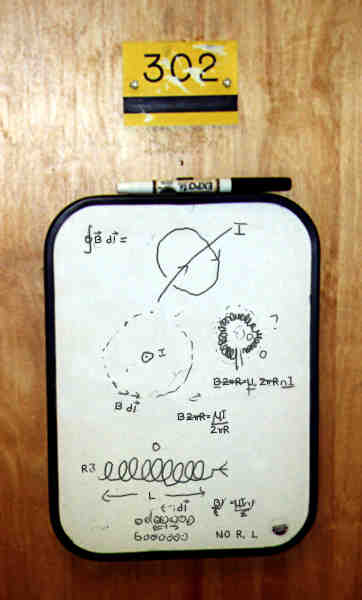 302
EXPO
∮B⃗ dl⃗ =
I
I
?
B⃗ dl⃗
B2πR=μ 2πRnI
B2πR= μI
2πR
O
R3
L
dl→
NO R. L